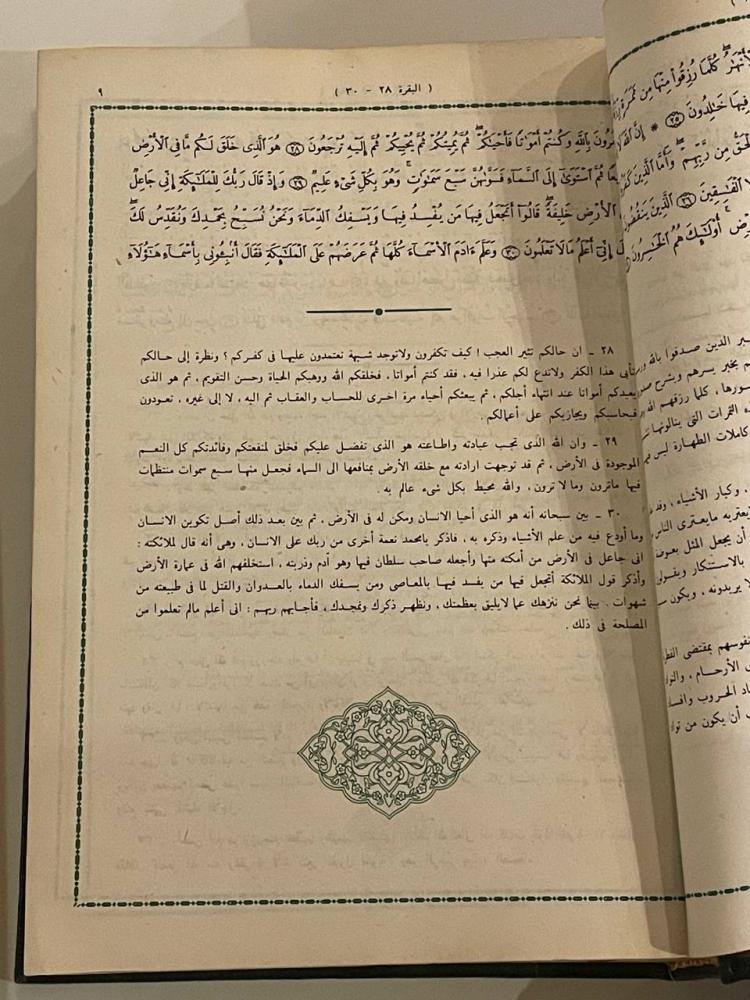 ( البقرة ٢٨ - ٣٠ )
٩
فُرُونَ بِٱللَّهِ وَكُنتُمْ أَمْوَٰتًا فَأَحْيَٰكُمْ ۖ ثُمَّ يُمِيتُكُمْ ثُمَّ يُحْيِيكُمْ ثُمَّ إِلَيْهِ تُرْجَعُونَ ٢٨ هُوَ ٱلَّذِى خَلَقَ لَكُم مَّا فِى ٱلْأَرْضِ
ثُمَّ ٱسْتَوَىٰٓ إِلَى ٱلسَّمَآءِ فَسَوَّىٰهُنَّ سَبْعَ سَمَٰوَٰتٍ ۚ وَهُوَ بِكُلِّ شَىْءٍ عَلِيمٌ ٢٩ وَإِذْ قَالَ رَبُّكَ لِلْمَلَٰٓئِكَةِ إِنِّى جَاعِلٌ
ٱلْأَرْضِ خَلِيفَةً ۖ قَالُوٓا۟ أَتَجْعَلُ فِيهَا مَن يُفْسِدُ فِيهَا وَيَسْفِكُ ٱلدِّمَآءَ وَنَحْنُ نُسَبِّحُ بِحَمْدِكَ وَنُقَدِّسُ لَكَ ۖ
إِنِّىٓ أَعْلَمُ مَا لَا تَعْلَمُونَ ٣٠ وَعَلَّمَ ءَادَمَ ٱلْأَسْمَآءَ كُلَّهَا ثُمَّ عَرَضَهُمْ عَلَى ٱلْمَلَٰٓئِكَةِ فَقَالَ أَنۢبِـُٔونِى بِأَسْمَآءِ هَٰٓؤُلَآءِ
٢٨ ـ ان حالكم تثير العجب ! كيف تكفرون ولاتوجد شبهة تعتمدون عليها فى كفركم ؟ ونظرة إلى حالكم
تأبى هذا الكفر ولاتدع لكم عذرا فيه ، فقد كنتم أمواتا ، فخلقكم الله ووهبكم الحياة وحسن التقويم ، ثم هو الذى
يعيدكم أمواتا عند انتهاء أجلكم ، ثم يبعثكم أحياء مرة اخرى للحساب والعقاب ثم اليه ، لا إلى غيره ، تعودون
فيحاسبكم ويجازيكم على أعمالكم .
٢٩ ـ وان الله الذى تجب عبادته واطاعته هو الذى تفضل عليكم فخلق لمنفعتكم وفائدتكم كل النعم
الموجودة فى الأرض ، ثم قد توجهت ارادته مع خلقه الأرض بمنافعها الى السماء فجعل منها سبع سموات منتظمات
فيها ماترون وما لا ترون ، والله محيط بكل شىء عالم به .
٣٠ ـ بين سبحانه أنه هو الذى أحيا الانسان ومكن له فى الأرض ، ثم بين بعد ذلك أصل تكوين الانسان
وما أودع فيه من علم الأشياء وذكره به ، فاذكر يامحمد نعمة أخرى من ربك على الانسان ، وهى أنه قال لملائكته :
انى جاعل فى الأرض من أمكنه منها وأجعله صاحب سلطان فيها وهو آدم وذريته ، استخلفهم الله فى عمارة الأرض
وأذكر قول الملائكة أتجعل فيها من يفسد فيها بالمعاصى ومن يسفك الدماء بالعدوان والقتل لما فى طبيعته من
شهوات . بينما نحن ننزهك عما لايليق بعظمتك ، ونظهر ذكرك ونمجدك ، فأجابهم ربهم : انى أعلم مالم تعلموا من
المصلحة فى ذلك .